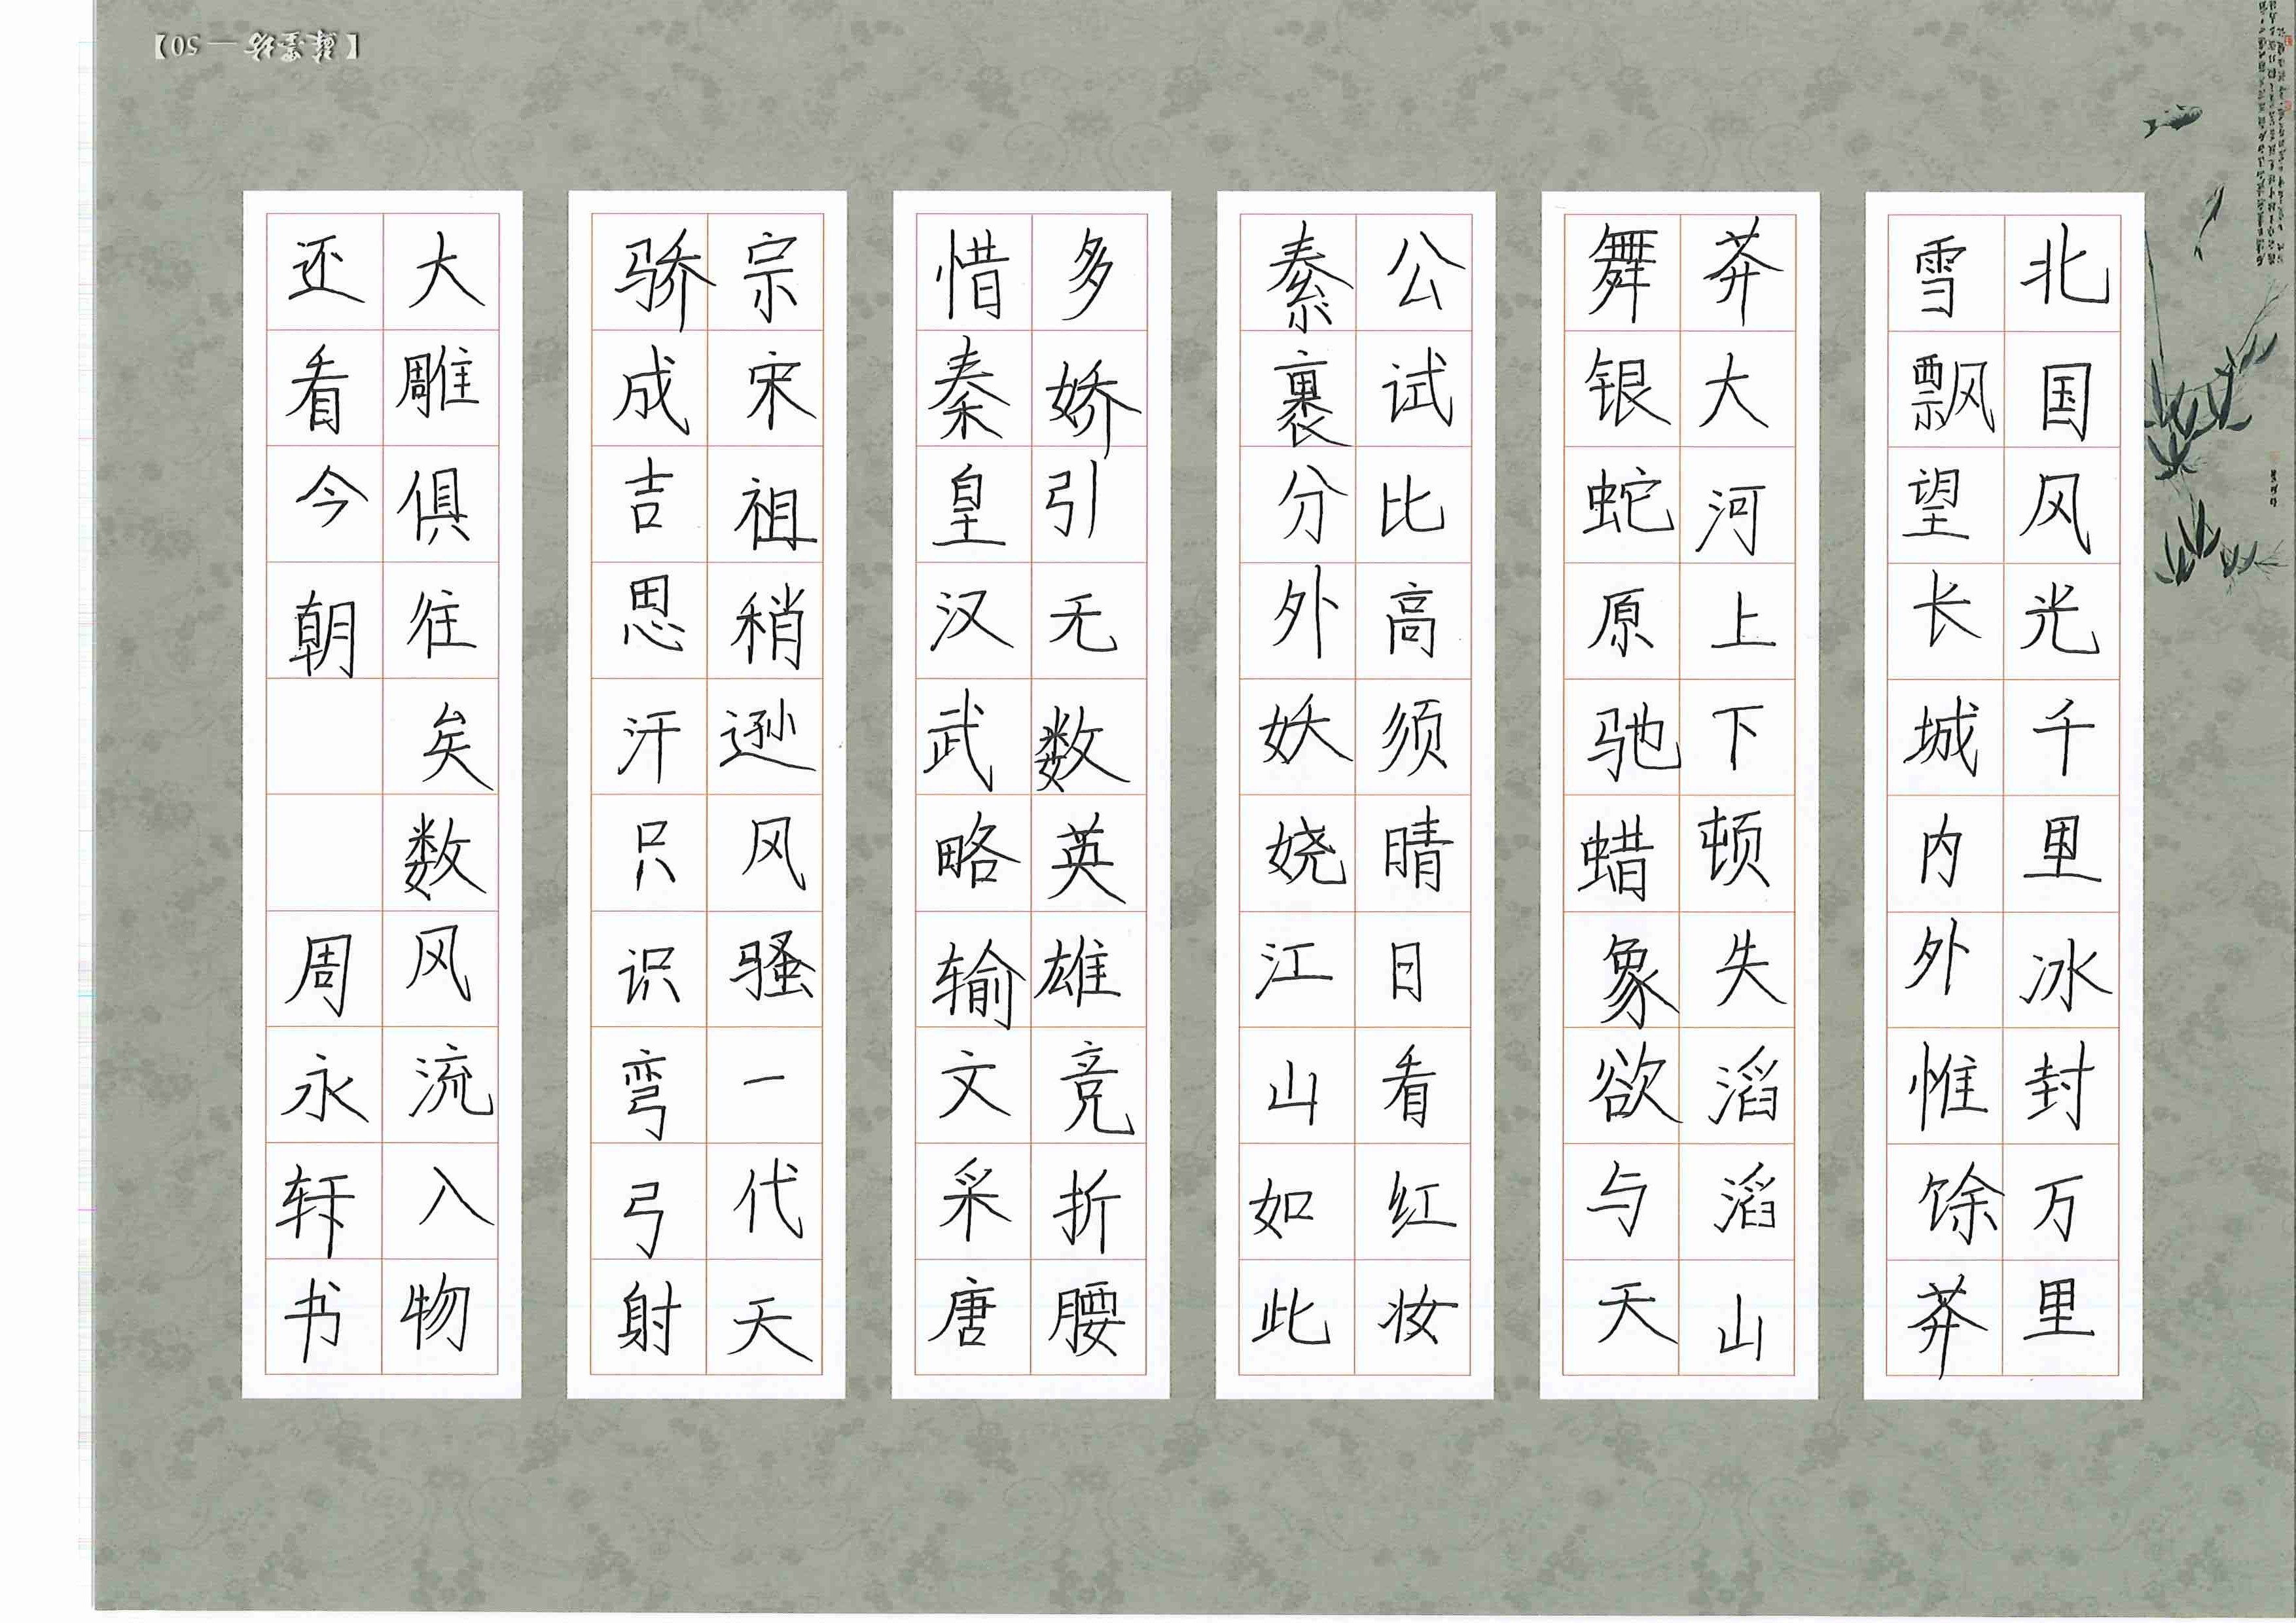 北国风光千里冰封万里
雪飘望长城内外惟馀莽
莽大河上下顿失滔滔山
舞银蛇原驰蜡象欲与天
公试比高须晴日看红妆
素裹分外妖娆江山如此
多娇引无数英雄竞折腰
惜秦皇汉武略输文采唐
宗宋祖稍逊风骚一代天
骄成吉思汗只识弯弓射
大雕俱往矣数风流人物
还看今朝 周永轩书